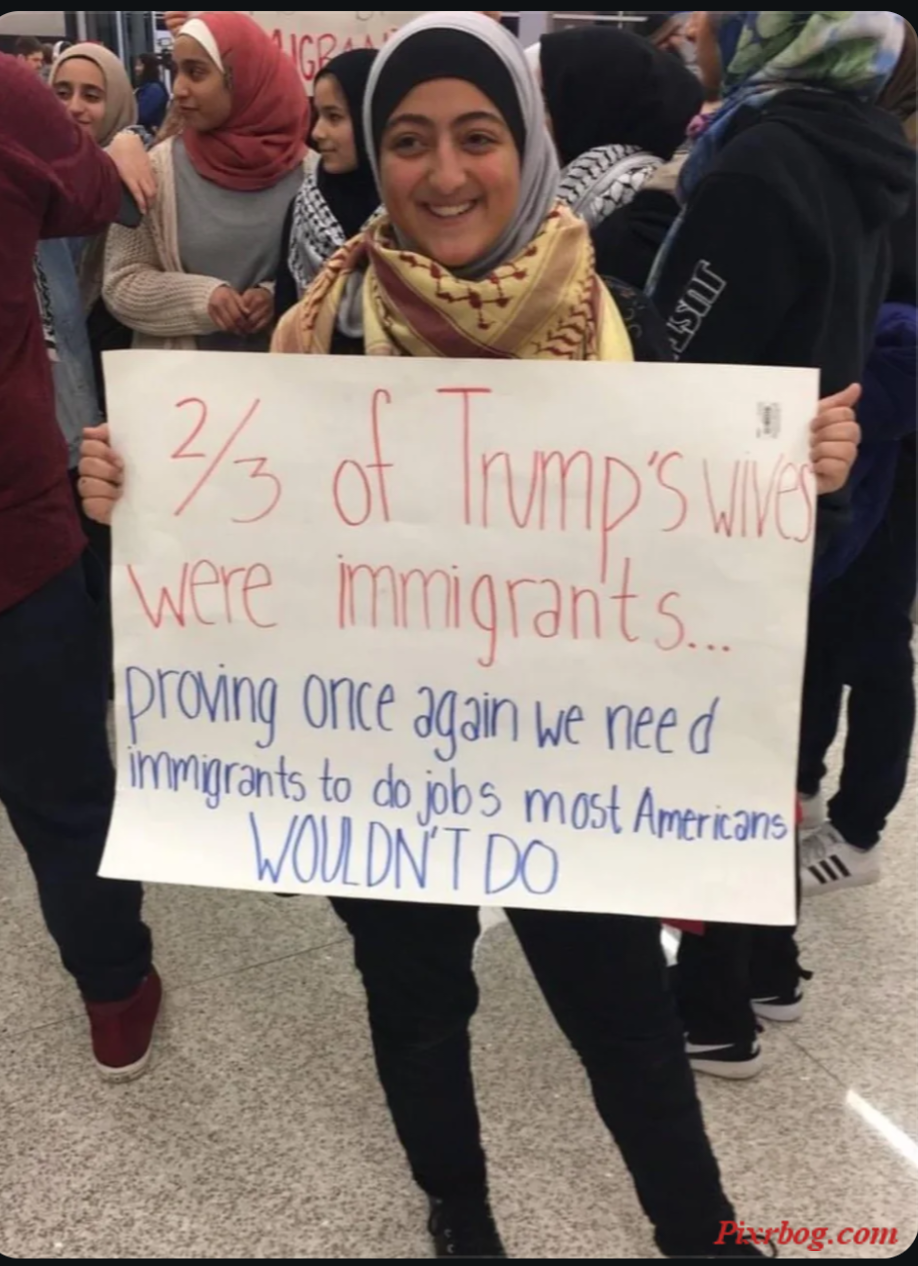 MIGRAN
2/3 of Trump's wives
were immigrants...
proving once again we need
immigrants to do jobs most Americans
WOULDN'T DO
Pixrbog.com